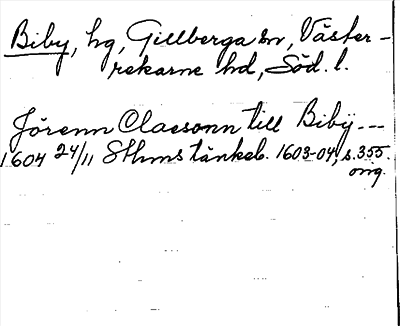 Biby, hg, Gillberga sn, Väster-
rekarne hd, Söd. l.
Jörenn Claesonn till Bibÿ---
1604 24/11 Sthms tänkeb. 1603-04, s. 355.
orig.